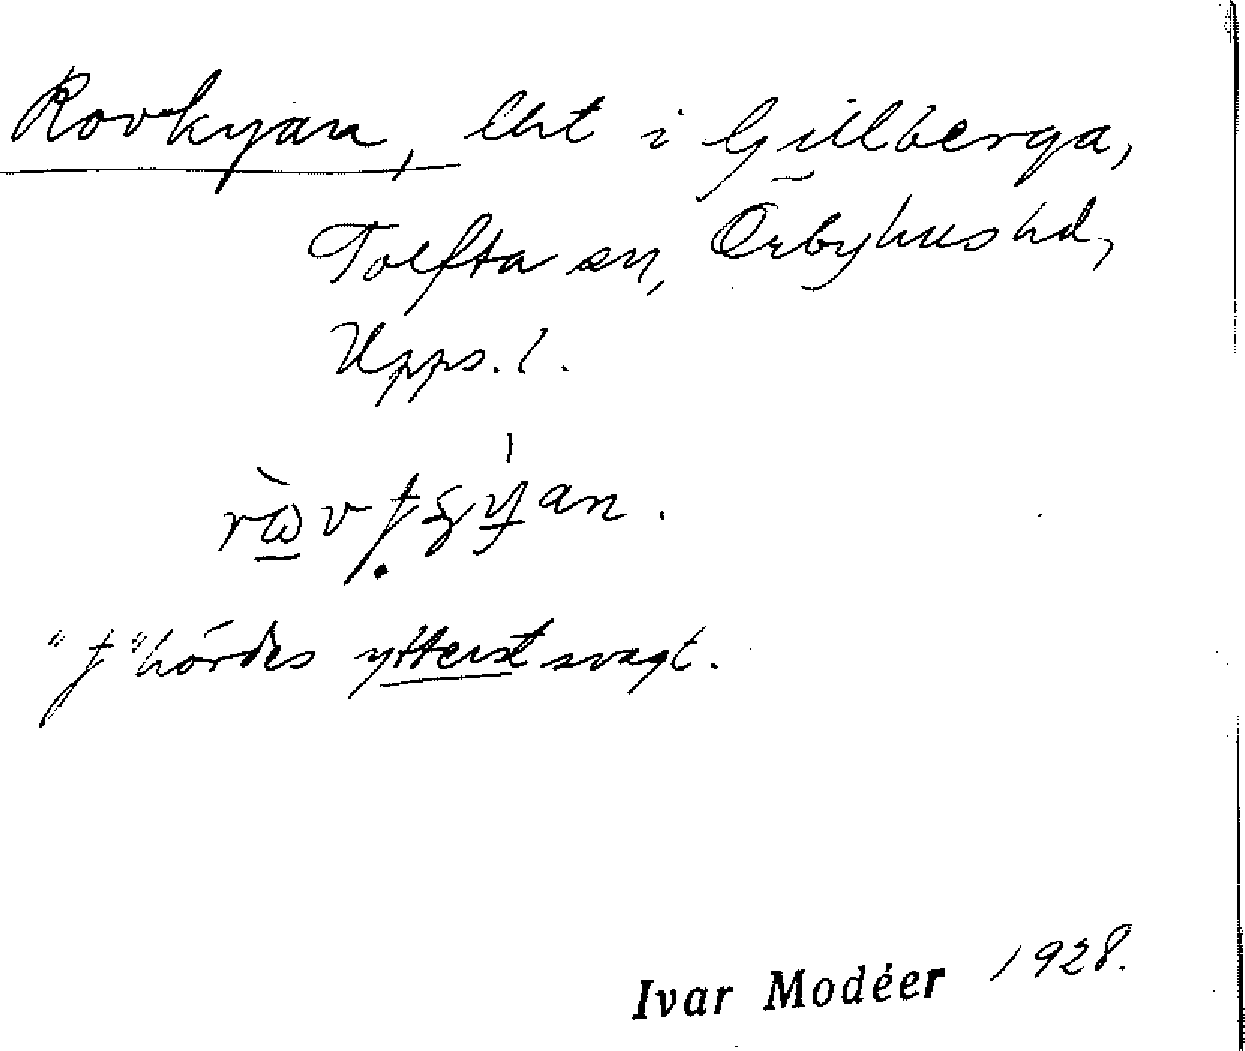 Rovkyan, lht i Gillberga,
Tolfta sn, Örbyhus hd,
Upps. l.
"f" hördes ytterst svagt.
Ivar Modéer 1928.